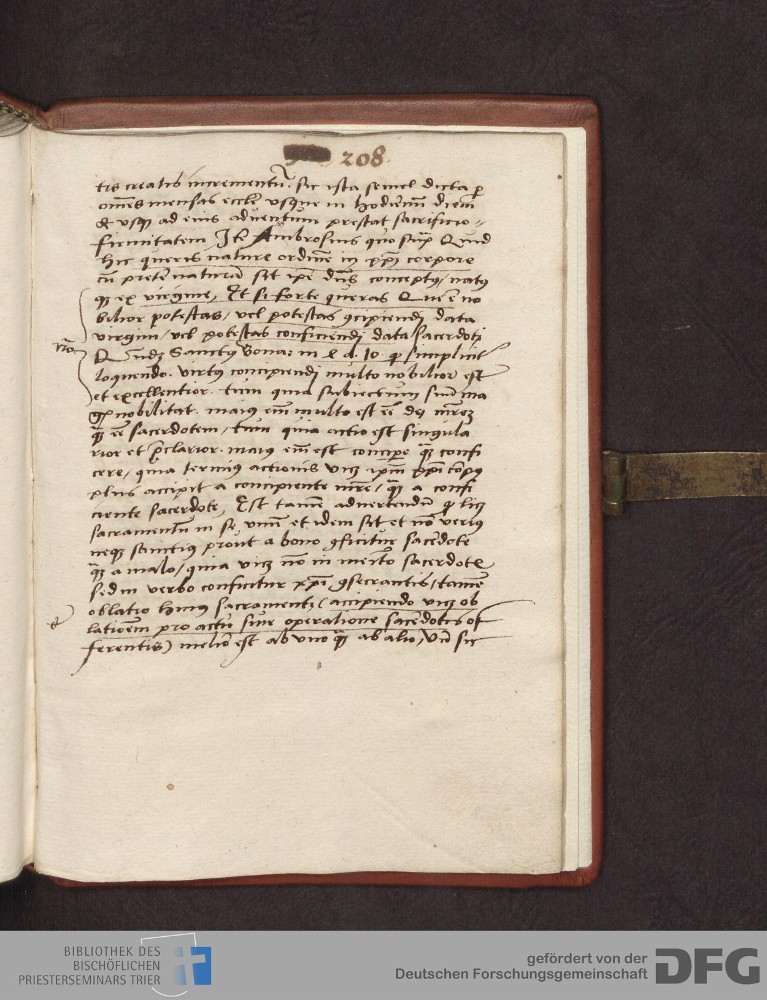 208.
tis creatis incrementū. sic ista semel dicta p
omēs mensas eccłe usque in hodiernū diem
& usq ad eius adventum prestat sacrificio
firmitatem. Jt Ambrosius quo supͣ Quid
hic queris nature ordinē in xp̄i corpore
cū preter naturā sit ipē dn̄s conceptꝰ / natꝰ
qꝫ ex virgine, Et si forte queras Que ē no
bilior potestas / vel potestas ꝯcipiendi data
virgini / vel potestas conficiendi data sacerdoti
Sanctꝰ Bona: in simplicit
loquendo. virtus concipiendi multo nobilior est
et excellentior. tum quia subiectum
nobilitat. maius em̄ multo est eē dei mr̄em
qͣꝫ eē sacerdotem / tum quia actio est singula
rior et p̄clarior. maius em̄ est concipe qͣꝫ confi
cere / quia terminꝰ actionis ipm̄ xp̄i corpꝰ
plus accipit a concipiente mr̄e / qͣꝫ a confi
ciente sacerdote, Est tamē advertendū ꝙ licꝫ
sacramentū in se unū et idem sit et nō verius
neqꝫ sanctius prout a bono ꝯficitur sacerdote
qͣꝫ a malo / quia nō in merito sacerdotis
sed in verbo conficitur xp̄i ꝯsecrantis / tamē
oblatio huius sacramenti (accipiendo ob
lationem pro actu sive operatione sacerdotis of
ferentis) melior est ab uno qͣꝫ ab alio / Uñ sic
BIBLIOTHEK DES
BISCHÖFLICHEN
PRIESTERSEMINARS TRIER
gefördert von der
Deutschen Forschungsgemeinschaft
DFG